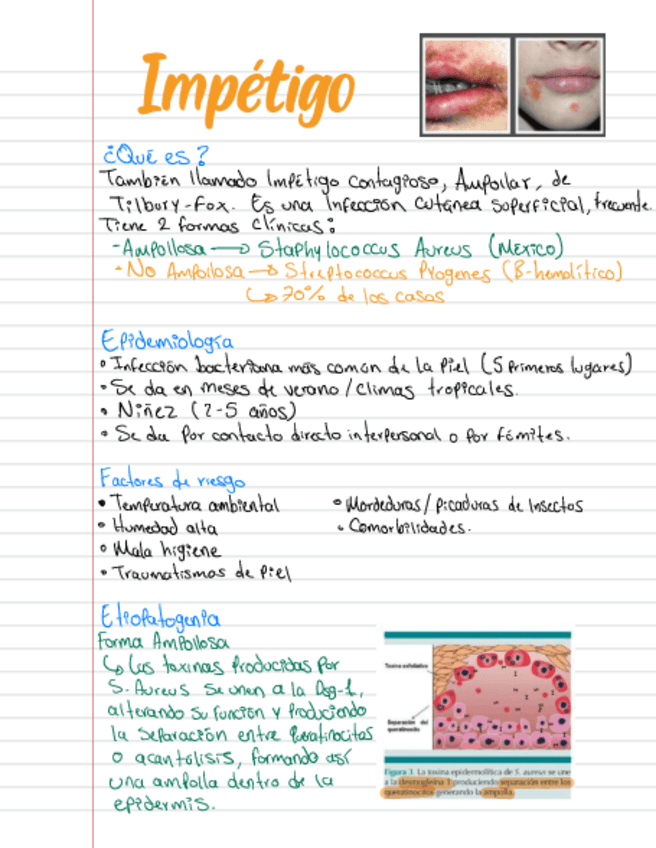 Impétigo
¿Qué es?
También llamado Impétigo contagioso, Ampollar, de
Tilbury-Fox. Es una Infección cutánea superficial, frecuente.
Tiene 2 formas clínicas:
-Ampollosa → Staphylococcus Aureus (México)
-No Ampollosa → Streptococcus Pyogenes (B-hemolítico)
↳ 70% de los casos
Epidemiología
• Infección bacteriana más común de la Piel (5 Primeros lugares)
• Se da en meses de verano / Climas tropicales.
• Niñez (2-5 años)
• Se da por contacto directo interpersonal o por fómites.
Factores de riesgo
• Temperatura ambiental
• Humedad alta
• Mala higiene
• Traumatismos de Piel
• Mordeduras / Picaduras de Insectos
• Comorbilidades.
Etiopatogenia
Forma Ampollosa
↳ Las toxinas Producidas Por
S. Aureus se unen a la Dsg-1,
alterando su función y Produciendo
la separación entre queratinocitos
o acantólisis, formando así
una ampolla dentro de la
epidermis.
Toxina exfoliativa
Separación del
queratinocito
Figura 3. La toxina epidermolítica de S. aureus se une
a la desmogleína 1 produciendo separación entre los
queratinocitos generando la ampolla.